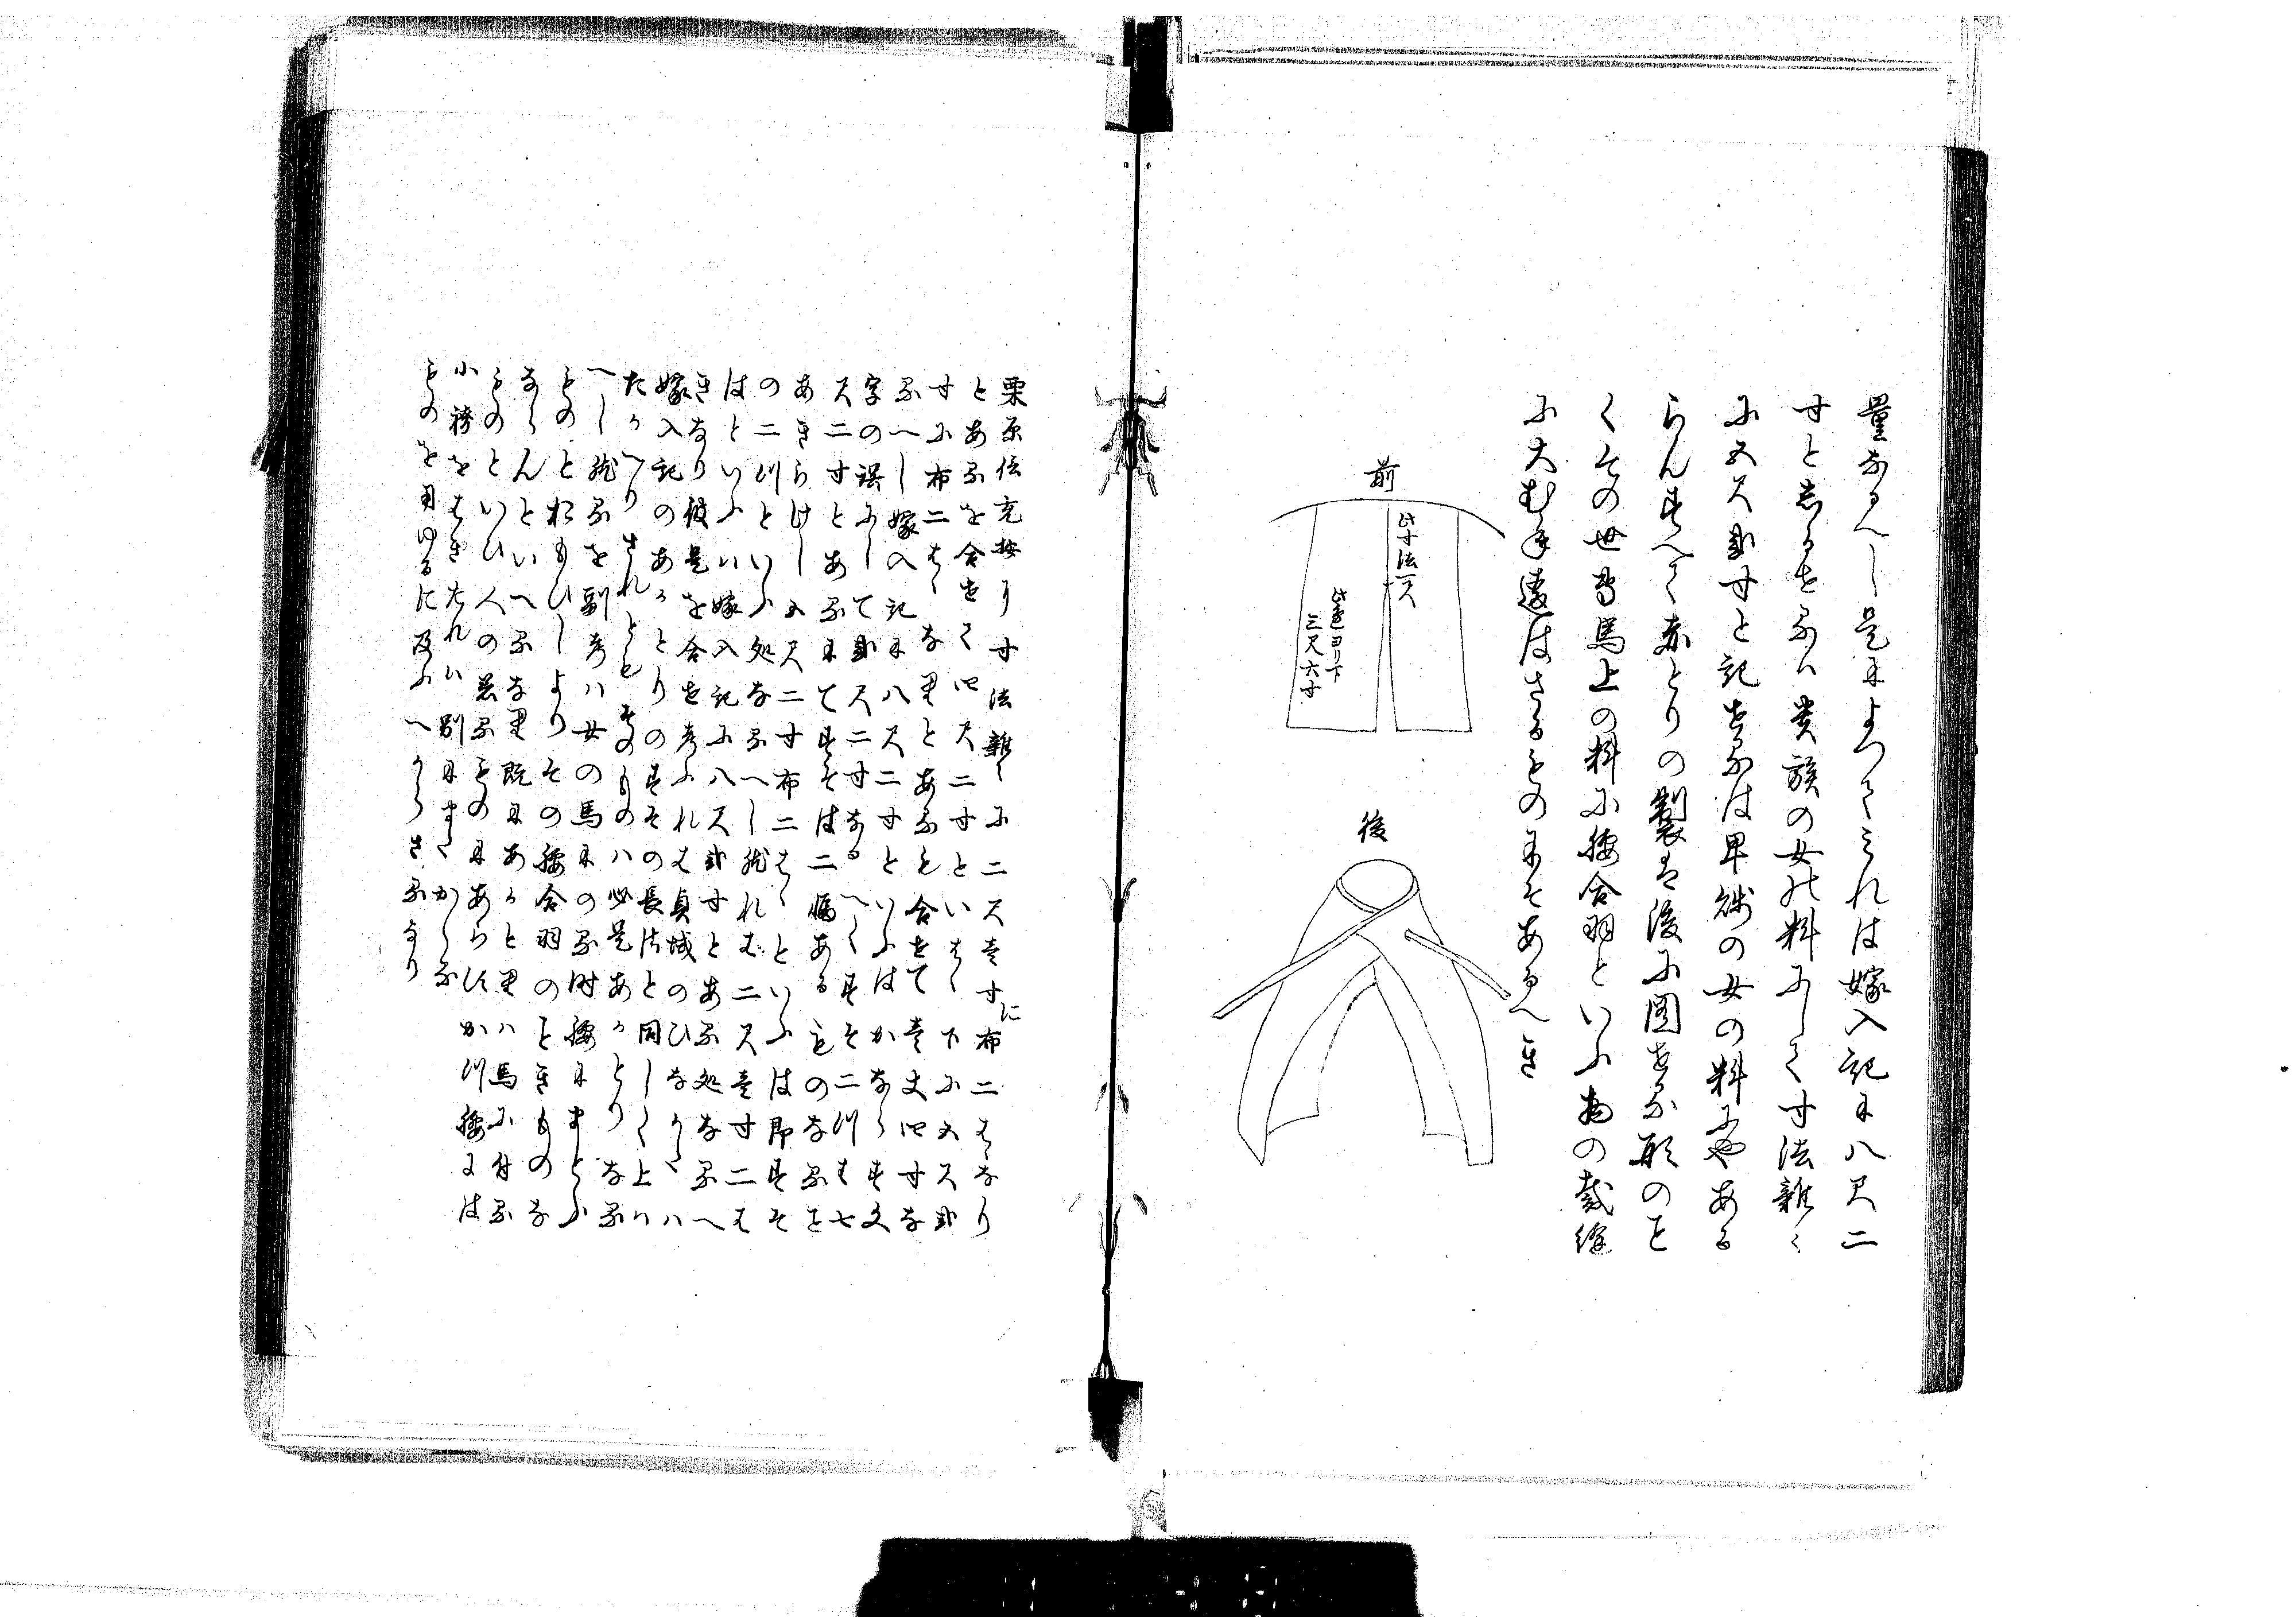 量なるへし是によつてみれは嫁入記に八尺二
寸と志るせるハ貴族の女の料にして寸法雑〻
に五尺許寸と記せるは卑賤の女の料にやある
らんすへて赤とりの製は後に図せる形のと
くその世馬上の料に腰合羽といふ物の裁縫
に大むね違はさるものにそあるへき
前
此寸法一尺
此通ヨリ下
三尺六寸
後
栗原信充按り寸法雑〻に二尺壱寸に布二はなり
とあるを合せて四尺二寸といはゝ下に五尺許
寸に布二はゝなりとあるも合せて壱丈四寸な
るへし嫁入記に八尺二寸といふはかならす文
字の誤にして許尺二寸なるへくすそ二つも七
尺二寸とあるにてすそは二幅あるものなるを
あきらけし五尺二寸布二はゝといふは即すそ
の二つといふ処なるへし然れは二尺壱寸二は
はといふハ嫁入記に八尺許寸とある処なるへ
きなり彼是を合せ考ふれは貞城のひなかたハ
嫁入記のあかとりのすその長法と同しく上ハ
たかへりされともそのものハ必是あかとりなる
へし然るを副考ハ女の馬にのる時腰にまとふ
ものとおもひしよりその腰合羽のときものな
ならんといへるなり既にあかとりハ馬に付る
ものといひ人の著るものにあらすかつ腰には
小袴をはきたれハ別にまたかゝる
ものを用ゆるに及ふへからさるなり